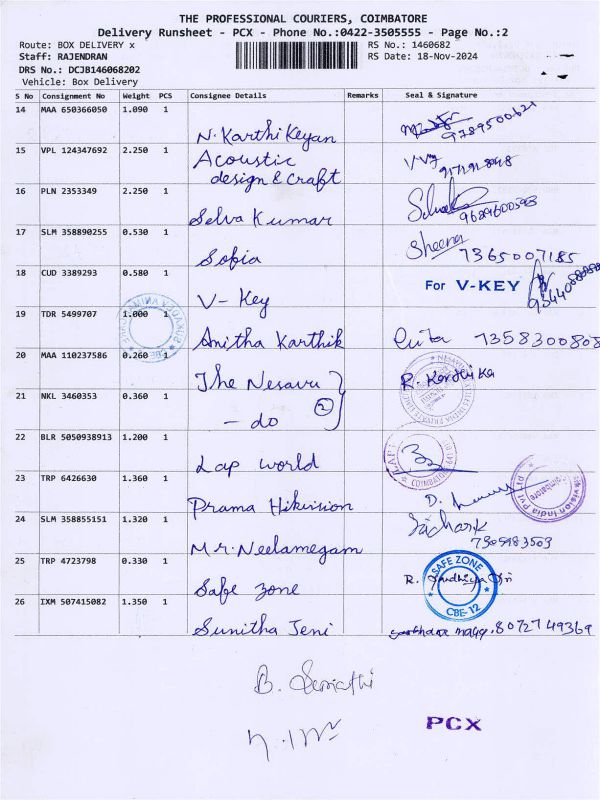 THE PROFESSIONAL COURIERS, COIMBATORE
Delivery Runsheet - PCX - Phone No.:0422-3505555 - Page No.:2
Route: BOX DELIVERY x
RS No.: 1460682
Staff: RAJENDRAN
RS Date: 18-Nov-2024
DRS No.: DCJB146068202
Vehicle: Box Delivery
S No Consignment No Weight PCS Consignee Details Remarks Seal & Signature
14 MAA 650366050 1.090 1 N. KarthiKeyan 9789500621
15 VPL 124347692 2.250 1 Acoustic
design & Craft
16 PLN 2353349 2.250 1 Selva Kumar
17 SLM 358890255 0.530 1 Sofia Sheena 7365007185
18 CUD 3389293 0.580 1 V- Key For V-KEY
19 TDR 5499707 1.000 1 Anitha Karthik 7358300808
20 MAA 110237586 0.260 1 The Nesavu R. Karthika
21 NKL 3460353 0.360 1 - do 2
22 BLR 5050938913 1.200 1 Lap world COIMBATORE
23 TRP 6426630 1.360 1 Prama Hikvision D.
24 SLM 358855151 1.320 1 Mr. Neelamegam 7305983503
25 TRP 4723798 0.330 1 Safe zone R. SAFE ZONE CBE-12
26 IXM 507415082 1.350 1 Sunitha Jeni 8072749369
B.
PCX